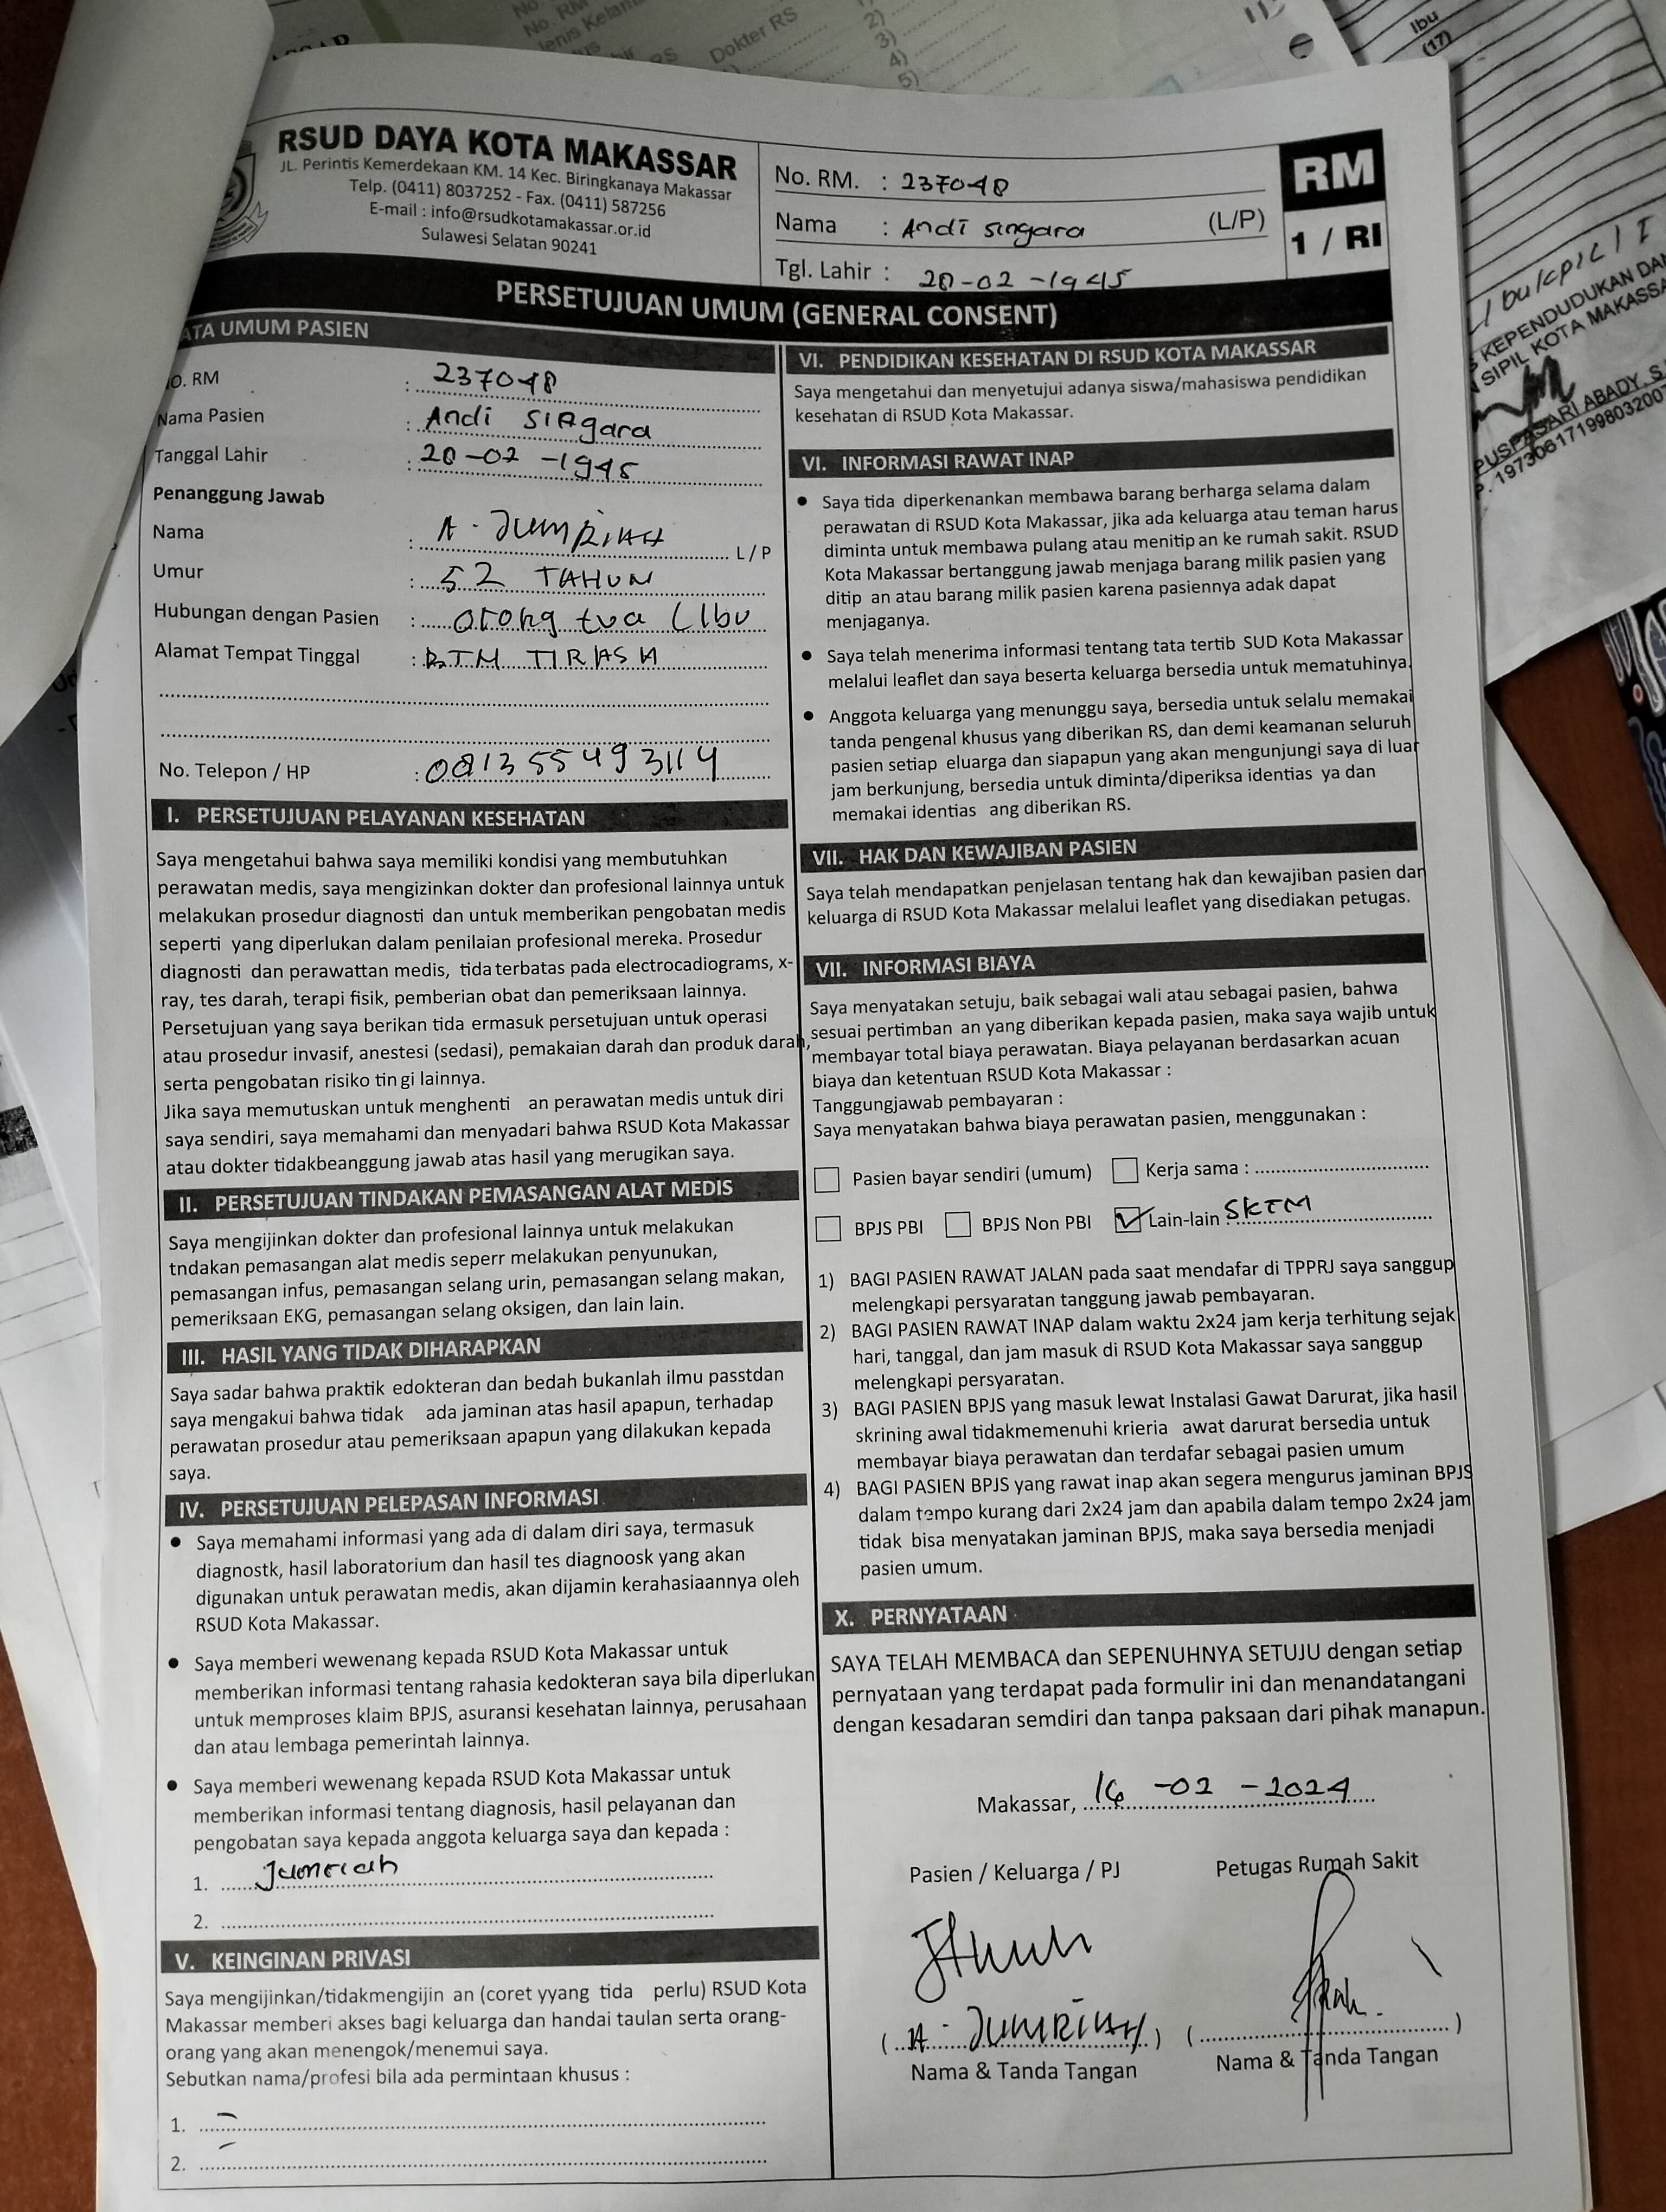 RSUD DAYA KOTA MAKASSAR
JL. Perintis Kemerdekaan KM. 14 Kec. Biringkanaya Makassar
Telp. (0411) 8037252 - Fax. (0411) 587256
E-mail : info@rsudkotamakassar.or.id
Sulawesi Selatan 90241
No. RM. : 237048
Nama : Andi Singara (L/P)
Tgl. Lahir : 20-02-1945
RM
1 / RI
PERSETUJUAN UMUM (GENERAL CONSENT)
ATA UMUM PASIEN
O. RM : 237048
Nama Pasien : Andi Singara
Tanggal Lahir : 20-02-1945
Penanggung Jawab
Nama : A. JUMRIAH L / P
Umur : 52 TAHUN
Hubungan dengan Pasien : orang tua (Ibu
Alamat Tempat Tinggal : BTM TIRASA
No. Telepon / HP : 081355493114
I. PERSETUJUAN PELAYANAN KESEHATAN
Saya mengetahui bahwa saya memiliki kondisi yang membutuhkan
perawatan medis, saya mengizinkan dokter dan profesional lainnya untuk
melakukan prosedur diagnosti dan untuk memberikan pengobatan medis
seperti yang diperlukan dalam penilaian profesional mereka. Prosedur
diagnosti dan perawattan medis, tida terbatas pada electrocadiograms, x-
ray, tes darah, terapi fisik, pemberian obat dan pemeriksaan lainnya.
Persetujuan yang saya berikan tida ermasuk persetujuan untuk operasi
atau prosedur invasif, anestesi (sedasi), pemakaian darah dan produk darah,
serta pengobatan risiko tin gi lainnya.
Jika saya memutuskan untuk menghenti an perawatan medis untuk diri
saya sendiri, saya memahami dan menyadari bahwa RSUD Kota Makassar
atau dokter tidakbeanggung jawab atas hasil yang merugikan saya.
II. PERSETUJUAN TINDAKAN PEMASANGAN ALAT MEDIS
Saya mengijinkan dokter dan profesional lainnya untuk melakukan
tndakan pemasangan alat medis seperr melakukan penyunukan,
pemasangan infus, pemasangan selang urin, pemasangan selang makan,
pemeriksaan EKG, pemasangan selang oksigen, dan lain lain.
III. HASIL YANG TIDAK DIHARAPKAN
Saya sadar bahwa praktik edokteran dan bedah bukanlah ilmu passtdan
saya mengakui bahwa tidak ada jaminan atas hasil apapun, terhadap
perawatan prosedur atau pemeriksaan apapun yang dilakukan kepada
saya.
IV. PERSETUJUAN PELEPASAN INFORMASI
• Saya memahami informasi yang ada di dalam diri saya, termasuk
diagnostk, hasil laboratorium dan hasil tes diagnoosk yang akan
digunakan untuk perawatan medis, akan dijamin kerahasiaannya oleh
RSUD Kota Makassar.
• Saya memberi wewenang kepada RSUD Kota Makassar untuk
memberikan informasi tentang rahasia kedokteran saya bila diperlukan
untuk memproses klaim BPJS, asuransi kesehatan lainnya, perusahaan
dan atau lembaga pemerintah lainnya.
• Saya memberi wewenang kepada RSUD Kota Makassar untuk
memberikan informasi tentang diagnosis, hasil pelayanan dan
pengobatan saya kepada anggota keluarga saya dan kepada :
1. Jumriah
2.
V. KEINGINAN PRIVASI
Saya mengijinkan/tidakmengijin an (coret yyang tida perlu) RSUD Kota
Makassar memberi akses bagi keluarga dan handai taulan serta orang-
orang yang akan menengok/menemui saya.
Sebutkan nama/profesi bila ada permintaan khusus :
1. -
2. -
VI. PENDIDIKAN KESEHATAN DI RSUD KOTA MAKASSAR
Saya mengetahui dan menyetujui adanya siswa/mahasiswa pendidikan
kesehatan di RSUD Kota Makassar.
VI. INFORMASI RAWAT INAP
• Saya tida diperkenankan membawa barang berharga selama dalam
perawatan di RSUD Kota Makassar, jika ada keluarga atau teman harus
diminta untuk membawa pulang atau menitip an ke rumah sakit. RSUD
Kota Makassar bertanggung jawab menjaga barang milik pasien yang
ditip an atau barang milik pasien karena pasiennya adak dapat
menjaganya.
• Saya telah menerima informasi tentang tata tertib SUD Kota Makassar
melalui leaflet dan saya beserta keluarga bersedia untuk mematuhinya.
• Anggota keluarga yang menunggu saya, bersedia untuk selalu memakai
tanda pengenal khusus yang diberikan RS, dan demi keamanan seluruh
pasien setiap eluarga dan siapapun yang akan mengunjungi saya di luar
jam berkunjung, bersedia untuk diminta/diperiksa identias ya dan
memakai identias ang diberikan RS.
VII. HAK DAN KEWAJIBAN PASIEN
Saya telah mendapatkan penjelasan tentang hak dan kewajiban pasien dan
keluarga di RSUD Kota Makassar melalui leaflet yang disediakan petugas.
VII. INFORMASI BIAYA
Saya menyatakan setuju, baik sebagai wali atau sebagai pasien, bahwa
sesuai pertimban an yang diberikan kepada pasien, maka saya wajib untuk
membayar total biaya perawatan. Biaya pelayanan berdasarkan acuan
biaya dan ketentuan RSUD Kota Makassar :
Tanggungjawab pembayaran :
Saya menyatakan bahwa biaya perawatan pasien, menggunakan :
Pasien bayar sendiri (umum) Kerja sama :
BPJS PBI BPJS Non PBI Lain-lain SKTM
1) BAGI PASIEN RAWAT JALAN pada saat mendafar di TPPRJ saya sanggup
melengkapi persyaratan tanggung jawab pembayaran.
2) BAGI PASIEN RAWAT INAP dalam waktu 2x24 jam kerja terhitung sejak
hari, tanggal, dan jam masuk di RSUD Kota Makassar saya sanggup
melengkapi persyaratan.
3) BAGI PASIEN BPJS yang masuk lewat Instalasi Gawat Darurat, jika hasil
skrining awal tidakmemenuhi krieria awat darurat bersedia untuk
membayar biaya perawatan dan terdafar sebagai pasien umum
4) BAGI PASIEN BPJS yang rawat inap akan segera mengurus jaminan BPJS
dalam tempo kurang dari 2x24 jam dan apabila dalam tempo 2x24 jam
tidak bisa menyatakan jaminan BPJS, maka saya bersedia menjadi
pasien umum.
X. PERNYATAAN
SAYA TELAH MEMBACA dan SEPENUHNYA SETUJU dengan setiap
pernyataan yang terdapat pada formulir ini dan menandatangani
dengan kesadaran semdiri dan tanpa paksaan dari pihak manapun.
Makassar, 16-02-2024
Pasien / Keluarga / PJ Petugas Rumah Sakit
( A. JUMRIAH ) ( )
Nama & Tanda Tangan Nama & Tanda Tangan
No. RM
Jenis Kelam
Dokter RS
2)
3)
4)
5)
Ibu
(17)
KEPENDUDUKAN DAN
SIPIL KOTA MAKASSA
PUSPASARI ABADY, S